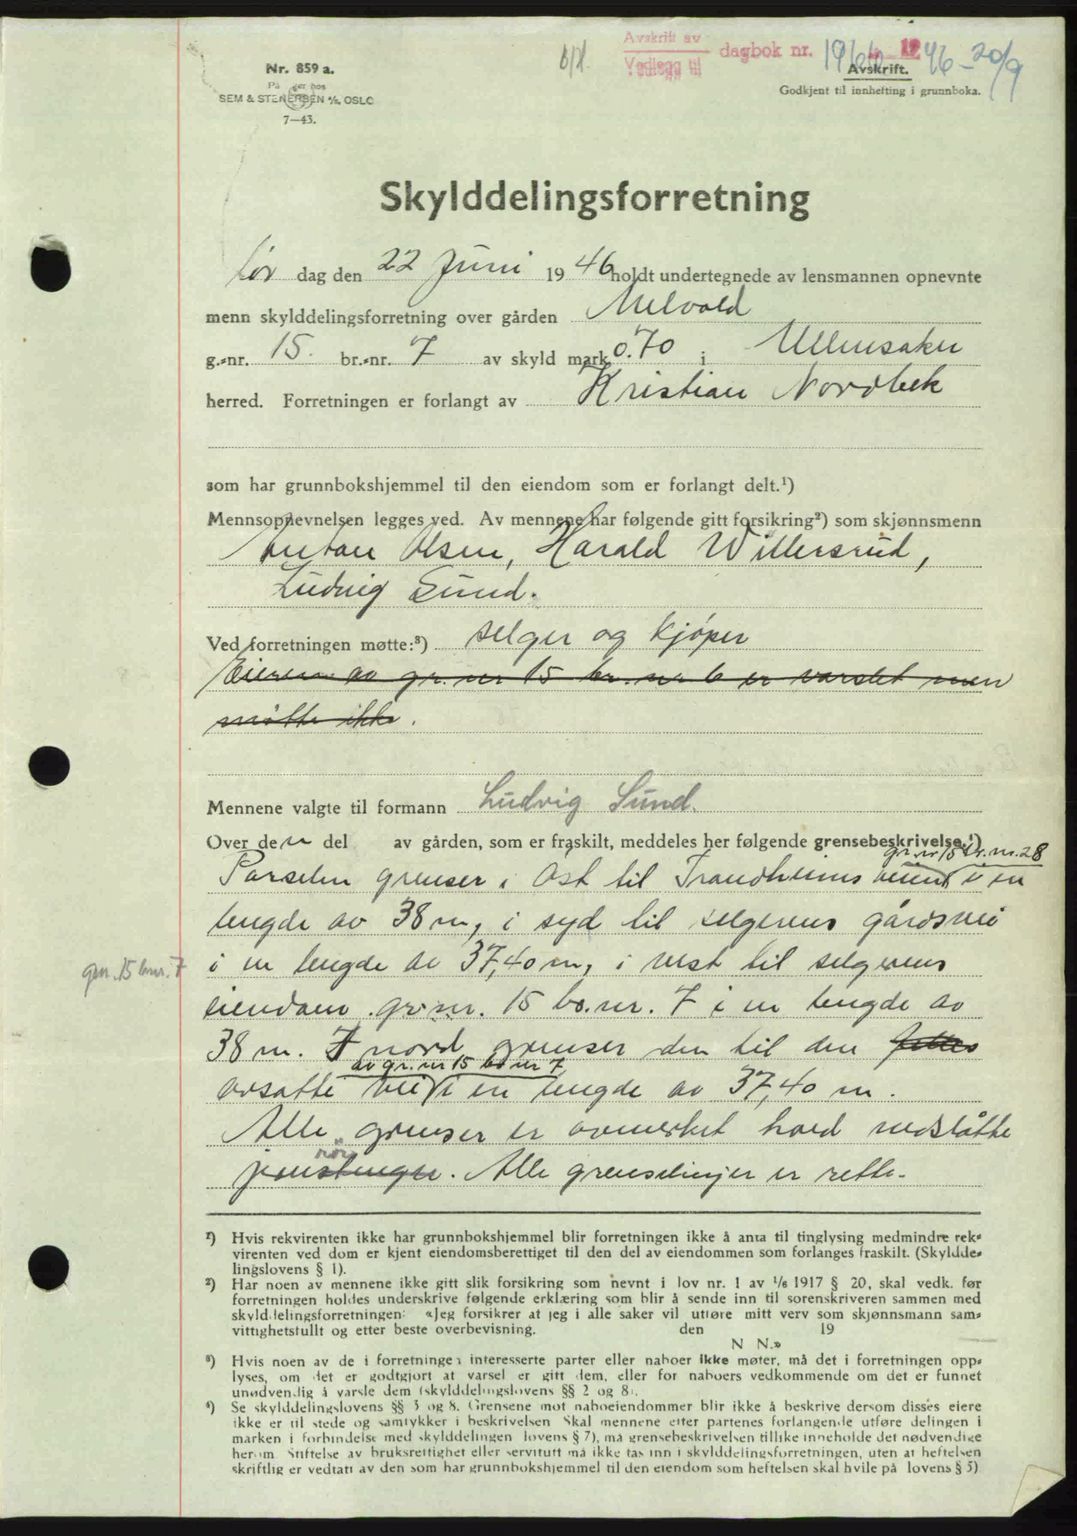 Avskrift av
Vedlegg til
dagbok nr. 1966 12 46 - 20/9
Nr. 859 a.
SEM & STENERSEN A/S, OSLO
7—43.
Avskrift.
Godkjent til innhefting i grunnboka.
Skylddelingsforretning
lør dag den 22 Juni 1946 holdt undertegnede av lensmannen opnevnte
menn skylddelingsforretning over gården Melvold
g.-nr. 15. br.-nr. 7 av skyld mark 0.70 i Ullensaker
herred. Forretningen er forlangt av Kristian Nordbek
som har grunnbokshjemmel til den eiendom som er forlangt delt.¹)
Mennsopnevnelsen legges ved. Av mennene har følgende gitt forsikring²) som skjønnsmenn
Anton Olsen, Harald Willersrud,
Ludvig Sund.
Ved forretningen møtte:³) selger og kjøper
Eieren av gr.nr 15 br.nr 6 er varslet men
møtte ikke.
Mennene valgte til formann Ludvig Sund.
Over den del av gården, som er fraskilt, meddeles her følgende grensebeskrivelse.⁴)
gr.nr 15 br.nr.28
Parselen grenser i Øst til Trandheims veien i en
lengde av 38 m, i syd til selgerens gårdsvei
i en lengde av 37,40 m, i vest til selgerens
gnr. 15 bnr. 7
eiendom gr.nr. 15 br.nr. 7 i en lengde av
38 m. I nord grenser den til den felles
av gr.nr 15 br nr 7
avsatte vei i en lengde av 37,40 m.
Alle grenser er avmerket med nedslåtte
rør
jernstenger. Alle grenselinjer er rette.
¹) Hvis rekvirenten ikke har grunnbokshjemmel blir forretningen ikke å anta til tinglysing medmindre rek-
virenten ved dom er kjent eiendomsberettiget til den del av eiendommen som forlanges fraskilt. (Skyldde-
lingslovens § 1).
²) Har noen av mennene ikke gitt slik forsikring som nevnt i lov nr. 1 av 1/6 1917 § 20, skal vedk. før
forretningen holdes underskrive følgende erklæring som blir å sende inn til sorenskriveren sammen med
skylddelingsforretningen: «Jeg forsikrer at jeg i alle saker vil utføre mitt verv som skjønnsmann sam-
vittighetsfullt og etter beste overbevisning. den 19
N N.»
³) Hvis noen av de i forretningen interesserte parter eller naboer ikke møter, må det i forretningen opp-
lyses, om det er godtgjort at varsel er gitt dem, eller for naboers vedkommende om det er funnet
unødvendig å varsle dem (skylddelingslovens §§ 2 og 8).
⁴) Se skylddelingslovens §§ 5 og 8. Grensene mot naboeiendommer blir ikke å beskrive dersom disses eiere
ikke er til stede og samtykker i beskrivelsen Skal mennene etter partenes forlangende utføre delingen i
marken i forbindelse med skylddelingen lovens § 7), må grensebeskrivelsen tillike inneholde det nødvendige
herom Stiftelse av bruksrettighet eller servitutt må ikke tas inn i skylddelingsforretningen, uten at heftelsen
skriftlig er vedtatt av den som har grunnbokshjemmel til den eiendom som heftelsen skal hvile på lovens § 5)